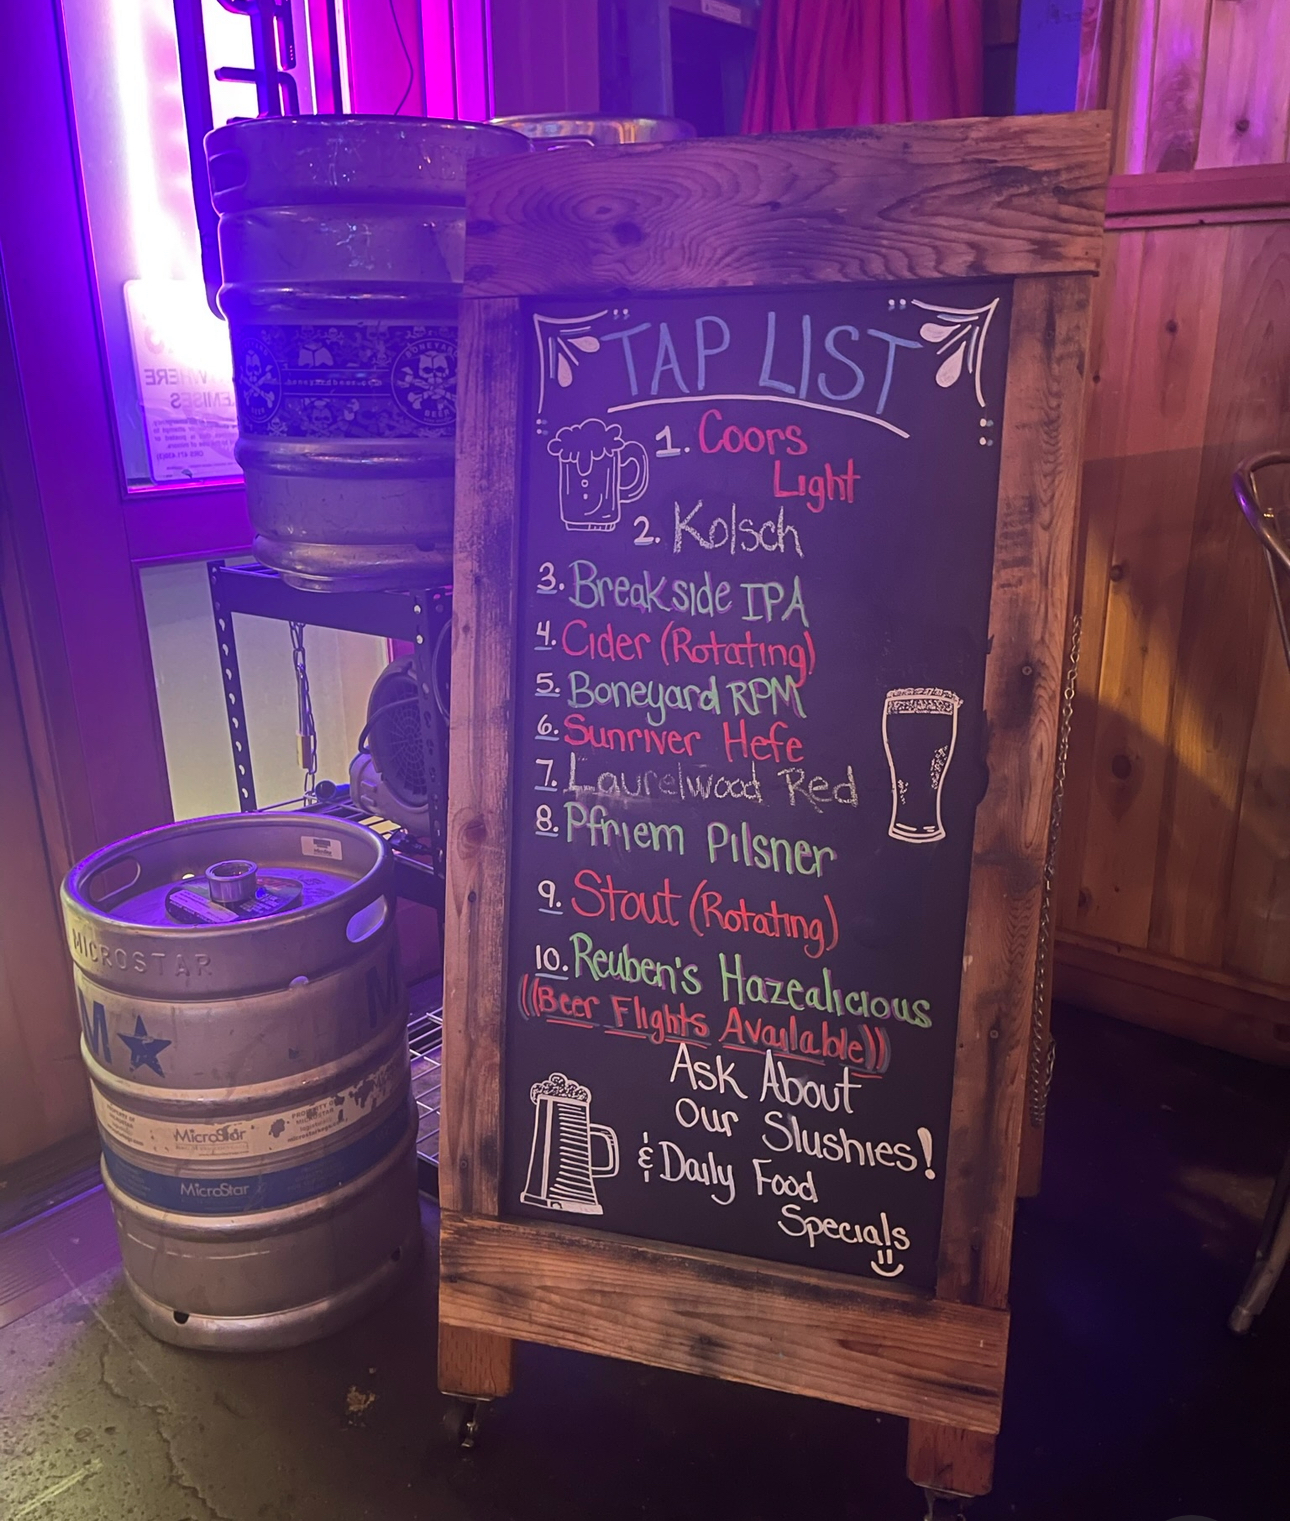 TAP LIST
1. Coors
Light
2. Kolsch
3. Breakside IPA
4. Cider (Rotating)
5. Boneyard RPM
6. Sunriver Hefe
7. Laurelwood Red
8. Pfriem Pilsner
9. Stout (Rotating)
10. Reuben's Hazealicious
((Beer Flights Available))
Ask About
Our Slushies!
& Daily Food
Specials
BONEYARD
BEER
MICROSTAR
M★ M
MicroStar
PROPERTY OF
MICROSTAR
MicroStar